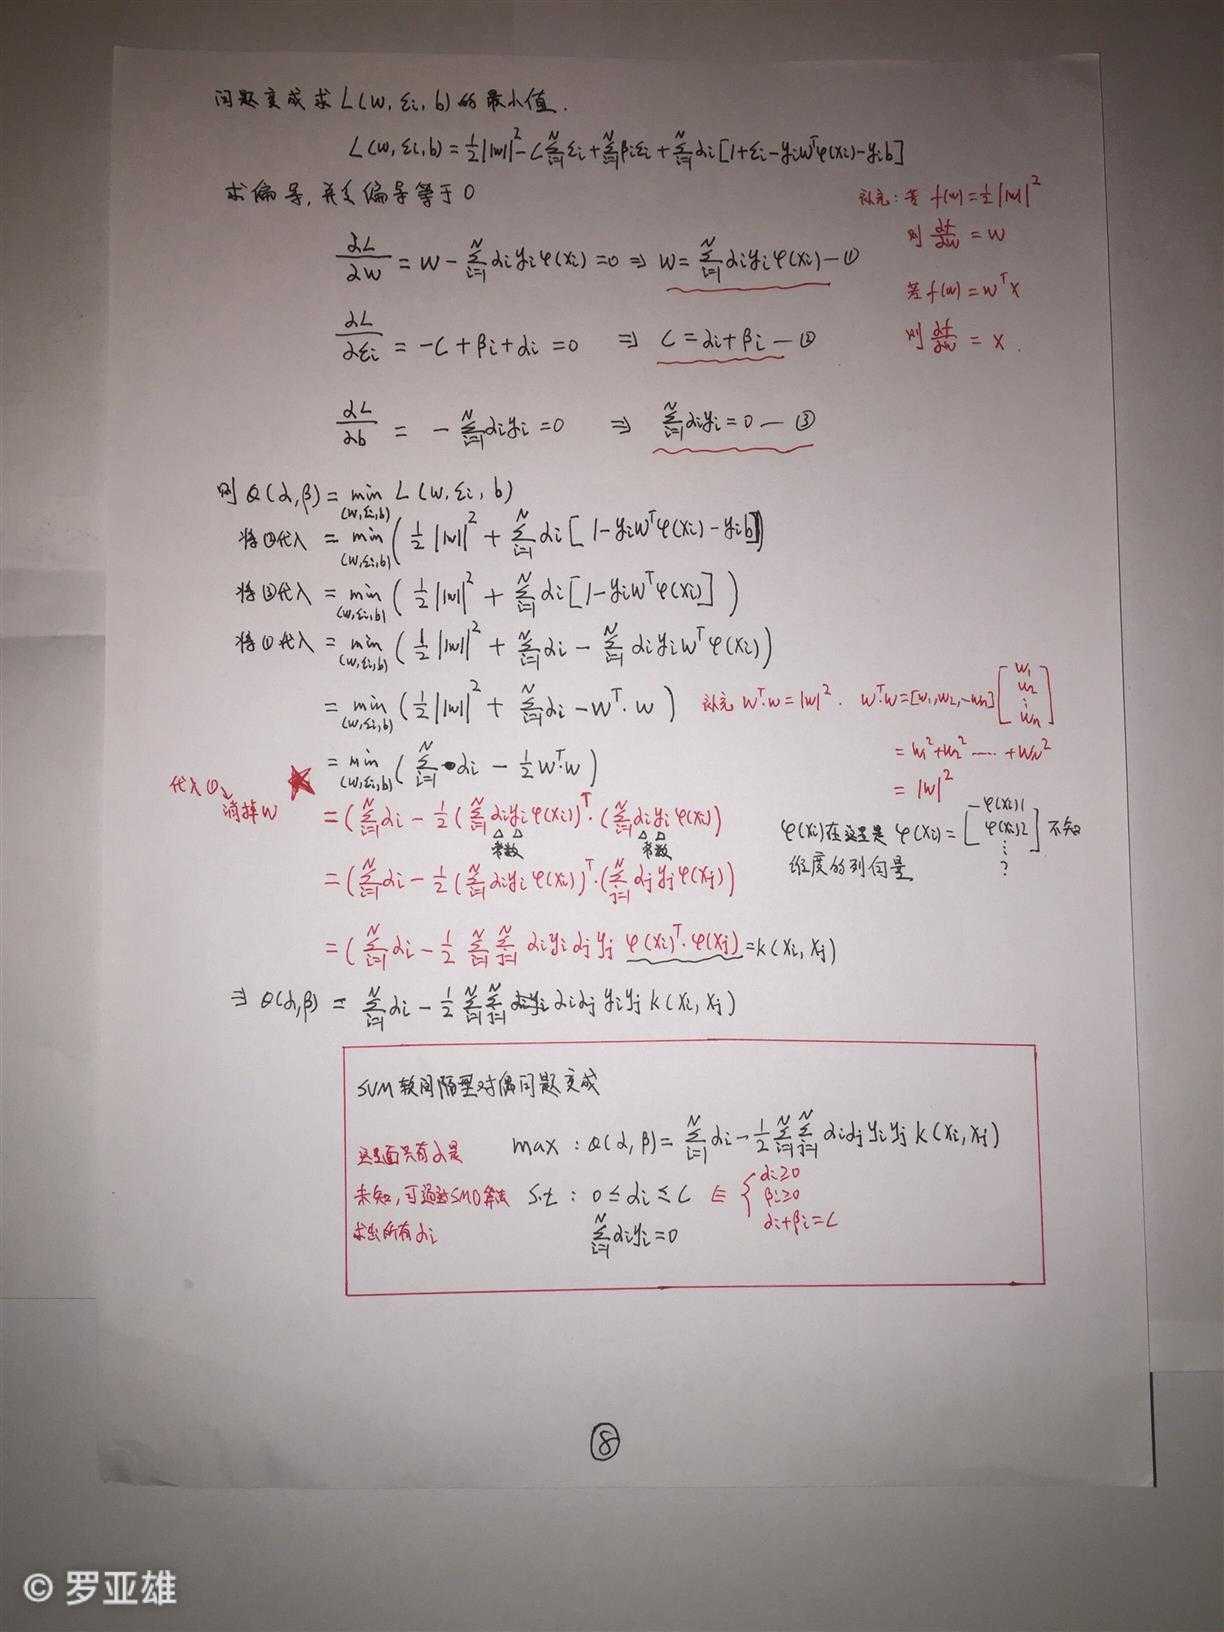 问题变成求L(w, εi, b)的最小值.
L(w, εi, b) = 1/2|w|² - C∑(i=1→N)εi + ∑(i=1→N)βiεi + ∑(i=1→N)αi[1+εi-yiwᵀφ(xi)-yib]
求偏导, 并令偏导等于0
补充: 若 f(w)=1/2|w|²
则 ∂f/∂w = w
∂L/∂w = w - ∑(i=1→N)αiyiφ(xi) = 0 ⇒ w = ∑(i=1→N)αiyiφ(xi) — ①
若 f(w) = wᵀx
则 ∂f/∂w = x.
∂L/∂εi = -C + βi + αi = 0 ⇒ C = αi + βi — ②
∂L/∂b = - ∑(i=1→N)αiyi = 0 ⇒ ∑(i=1→N)αiyi = 0 — ③
则 θ(α,β) = min(w,εi,b) L(w, εi, b)
将②代入 = min(w,εi,b) ( 1/2|w|² + ∑(i=1→N)αi[1-yiwᵀφ(xi)-yib])
将③代入 = min(w,εi,b) ( 1/2|w|² + ∑(i=1→N)αi[1-yiwᵀφ(xi)])
将①代入 = min(w,εi,b) ( 1/2|w|² + ∑(i=1→N)αi - ∑(i=1→N)αiyiwᵀφ(xi))
= min(w,εi,b) ( 1/2|w|² + ∑(i=1→N)αi - wᵀ·w )
补充 wᵀ·w = |w|². wᵀw = [w1, w2, ‐wn] [w1 w2 ⋮ wn]
= w1² + w2² ‐‐‐‐ + wn²
= |w|²
= min(w,εi,b) ( ∑(i=1→N)αi - 1/2wᵀ·w)
代入① 消掉w
= (∑(i=1→N)αi - 1/2(∑(i=1→N)αiyiφ(xi))ᵀ·(∑(i=1→N)αiyiφ(xi))
常数 常数
φ(xi)在这里是 φ(xi) = [φ(xi)1 φ(xi)2 ⋮ ?] 不知
维度的列向量
= (∑(i=1→N)αi - 1/2(∑(i=1→N)αiyiφ(xi))ᵀ·(∑(j=1→N)αjyjφ(xj))
= (∑(i=1→N)αi - 1/2∑(i=1→N)∑(j=1→N)αiyiαjyjφ(xi)ᵀ·φ(xj) = k(xi, xj)
⇒ θ(α,β) = ∑(i=1→N)αi - 1/2∑(i=1→N)∑(j=1→N)αiαjyiyjk(xi, xj)
SVM软间隔型对偶问题变成
max : θ(α,β) = ∑(i=1→N)αi - 1/2∑(i=1→N)∑(j=1→N)αiαjyiyjk(xi, xj)
这里面只有α是
未知, 可通过SMO算法
求出所有αi
s.t : 0 ≤ αi ≤ C ⇐ { αi≥0
βi≥0
αi+βi=C
∑(i=1→N)αiyi = 0
⑧
© 罗亚雄